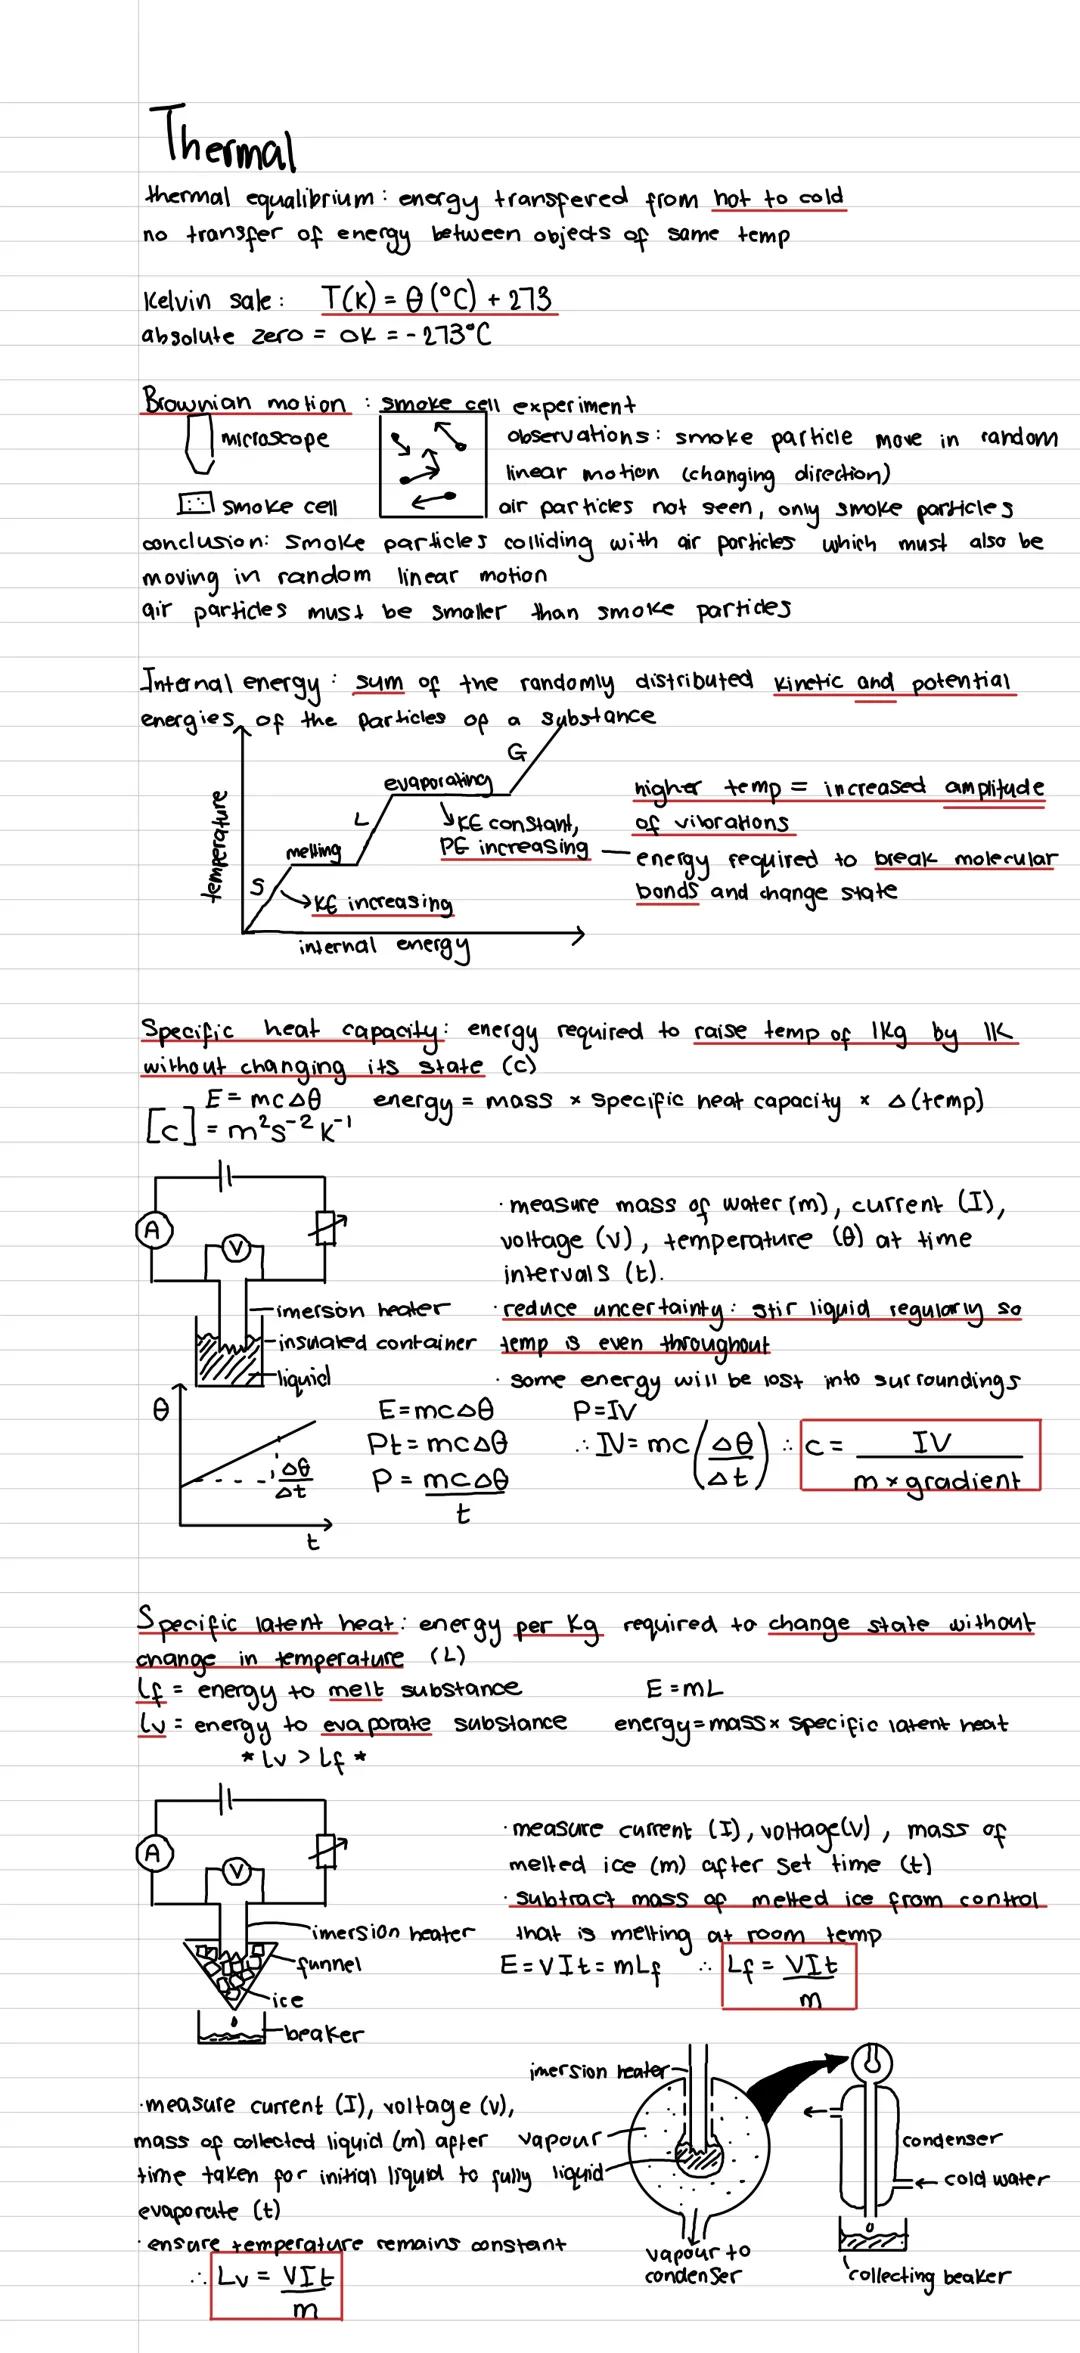 Thermal
thermal equalibrium : energy transfered from hot to cold
no transfer of energy between objects of same temp
Kelvin sale : T(K) = θ (°C) + 273
absolute zero = 0K = -273°C
Brownian motion : smoke cell experiment
microscope
smoke cell
observations : smoke particle move in random
linear motion (changing direction)
air particles not seen, only smoke particles
conclusion: smoke particles colliding with air particles which must also be
moving in random linear motion
air particles must be smaller than smoke particles
Internal energy : sum of the randomly distributed kinetic and potential
energies of the particles of a substance
temperature
S
melting
L
evaporating
G
KE increasing
KE constant,
PE increasing
internal energy
higher temp = increased amplitude
of vibrations
energy required to break molecular
bonds and change state
Specific heat capacity : energy required to raise temp of 1kg by 1K
without changing its state (c)
E = mcΔθ energy = mass × specific heat capacity × Δ(temp)
[c] = m²s⁻²K⁻¹
A
V
imersion heater
insulated container
liquid
· measure mass of water (m), current (I),
voltage (V), temperature (θ) at time
intervals (t).
· reduce uncertainty : stir liquid regularly so
temp is even throughout
· some energy will be lost into surroundings
θ
Δθ
Δt
t
E = mcΔθ
Pt = mcΔθ
P = mcΔθ
t
P = IV
∴ IV = mc (Δθ/Δt) ∴ c = IV
m × gradient
Specific latent heat : energy per kg required to change state without
change in temperature (L)
Lf = energy to melt substance E = mL
Lv = energy to evaporate substance energy = mass × specific latent heat
* Lv > Lf *
A
V
imersion heater
funnel
ice
beaker
· measure current (I), voltage (V), mass of
melted ice (m) after set time (t)
· subtract mass of melted ice from control
that is melting at room temp
E = VIt = mLf ∴ Lf = VIt
m
· measure current (I), voltage (V),
mass of collected liquid (m) after
time taken for initial liquid to fully
evaporate (t)
· ensure temperature remains constant
∴ Lv = VIt
m
imersion heater
vapour
liquid
vapour to
condenser
condenser
cold water
collecting beaker